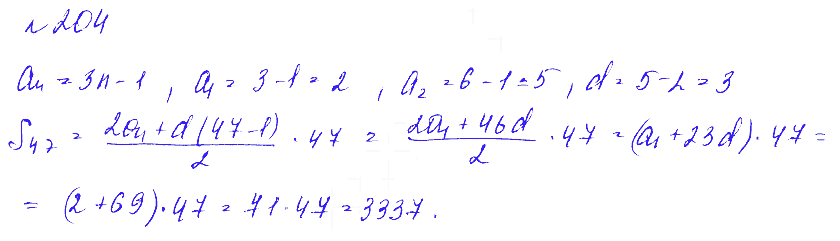 № 204
aₙ = 3n - 1 , a₁ = 3 - 1 = 2 , a₂ = 6 - 1 = 5 , d = 5 - 2 = 3
S₄₇ = (2a₁ + d(47 - 1))/2 · 47 = (2a₁ + 46d)/2 · 47 = (a₁ + 23d) · 47 =
= (2 + 69) · 47 = 71 · 47 = 3337.